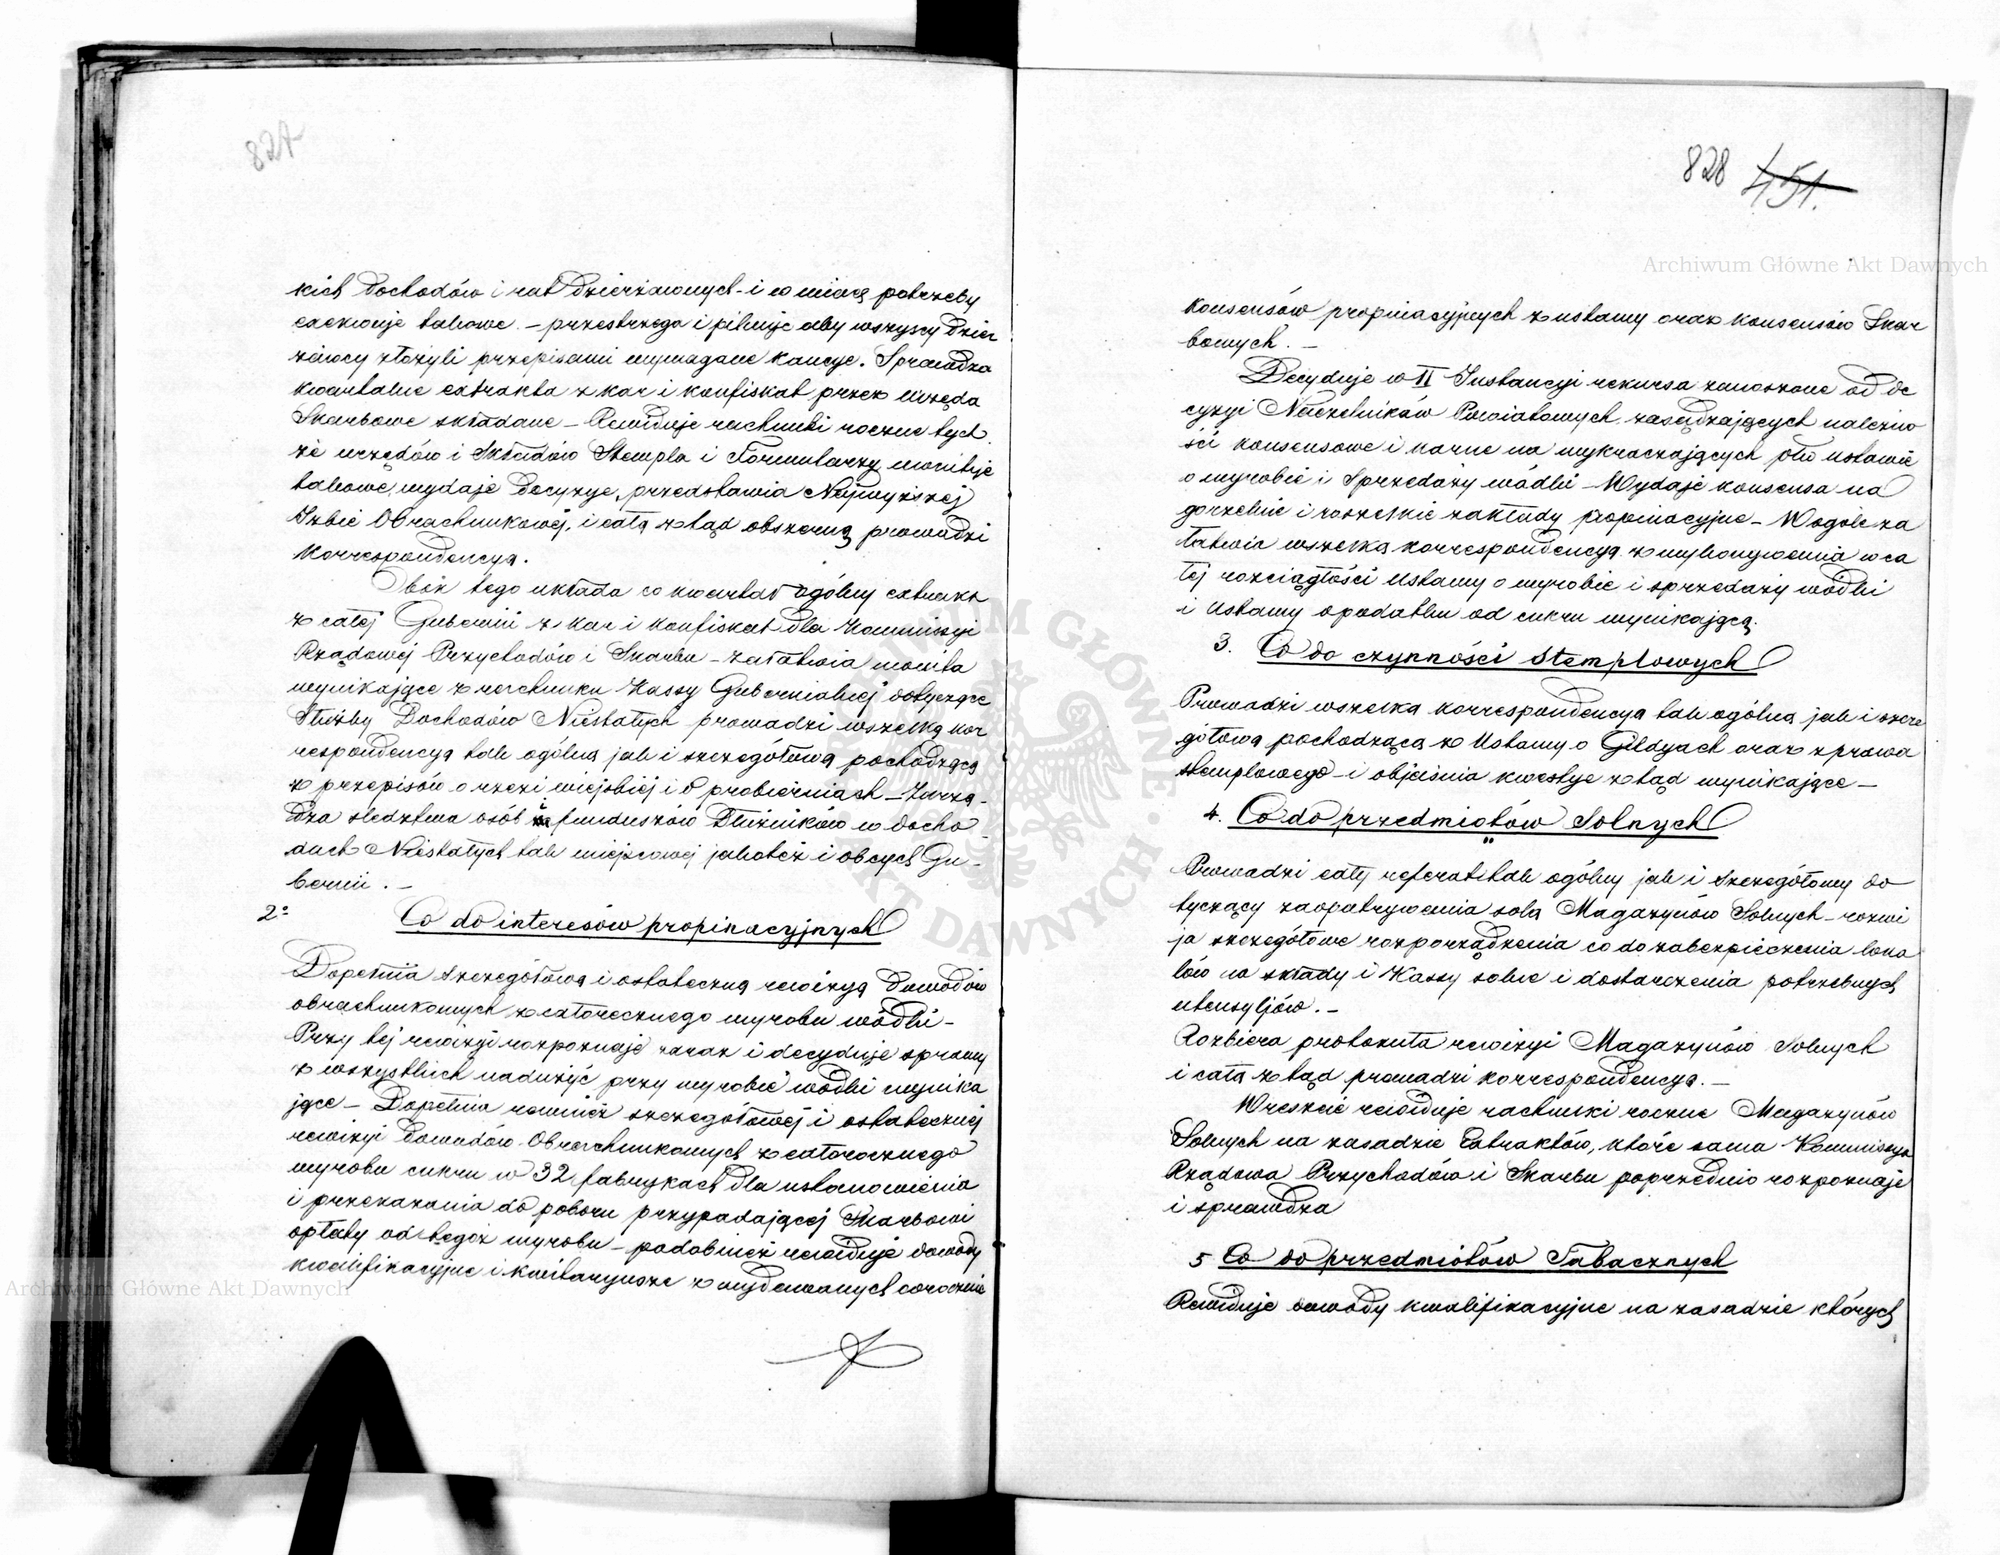 827
kich dochodów i rat dzierżawnych – i w miarę potrzeby
exekwuje takowe. – przestrzega i pilnuje aby wszyscy dzier
żawcy złożyli przepisami wymagane kaucye. Sprawdza
kwartalne extrakta z kar i konfiskat przez urzęda
Skarbowe składane – Rewiduje rachunki roczne tych
że urzędów i Składów Stempla i Formularzy monituje
takowe, wydaje decyzye, przedstawia Najwyższej
Izbie Obrachunkowej, i całą ztąd obszerną prowadzi
korrespondencyą.
Obok tego układa co kwartał ogólny extrakt
z całej Gubernii z kar i konfiskat dla Kommissyi
Rządowej Przychodów i Skarbu – załatwia monita
wynikające z rachunku Kassy Gubernialnej dotyczące
Służby Dochodów Niestałych prowadzi wszelką kor
respondencyą tak ogólną jak i szczegółową pochodzącą
z przepisów o rzezi wiejskiej i o probierniach – Zarzą-
dza śledztwa osób i funduszów Dłużników w docho
dach Niestałych tak miejscowej jakoteż i obcych Gu-
bernii. –
2° Co do interesów propinacyjnych
Dopełnia szczegółową i ostateczną rewizyą Dowodów
obrachunkowych z całorocznego wyrobu wódki –
Przy tej rewizyi rozpoznaje zaraz i decyduje sprawy
z wszystkich nadużyć przy wyrobie wódki wynika
jące – Dopełnia również szczegółowej i ostatecznej
rewizyi Dowodów Obrachunkowych z całorocznego
wyrobu cukru w 32 fabrykach dla ustanowienia
i przekazania do poboru przypadającej Skarbowi
opłaty od tegoż wyrobu – podobnież rewiduje dowody
kwalifikacyjne i kwitaryusze z wydawanych corocznie
828 451.
konsensów propinacyjnych z ustawy oraz konsensów Skar
bowych. –
Decyduje w II Instancyi rekursa zanoszone od de
cyzyi Naczelników Powiatowych zasądzających należno
ści konsensowe i karne na wykraczających ptko ustawie
o wyrobie i Sprzedaży wódki – Wydaje konsensa na
gorzelnie i wszelkie zakłady propinacyjne – Wogóle za
łatwia wszelką korrespondencyą z wykonywania w ca
łej rozciągłości Ustawy o wyrobie i sprzedaży wódki
i Ustawy o podatku od cukru wynikającą.
3. Co do czynności Stemplowych
Prowadzi wszelką korrespondencyą tak ogólną jak i szcze
gółową pochodzącą z Ustawy o Gildyach oraz z prawa
stemplowego – i objaśnia kwestye ztąd wynikające –
4. Co do przedmiotów Solnych
Prowadzi cały referat tak ogólny jak i Szczegółowy do
tyczący zaopatrywania solą Magazynów Solnych – rozwi
ja szczegółowe rozporządzenia co do zabezpieczenia loka
lów na składy i Kassy solne i dostarczenia potrzebnych
utensyljów. –
Rozbiera protokuła rewizyi Magazynów Solnych
i całą ztąd prowadzi korrespondencyą. –
Wreszcie rewiduje rachunki roczne Magazynów
Solnych na zasadzie Extraktów, które sama Kommissya
Rządowa Przychodów i Skarbu poprzednio rozpoznaje
i sprawdza
5 Co do przedmiotów Tabacznych
Rewiduje dowody kwalifikacyjne na zasadzie których
Archiwum Główne Akt Dawnych
Archiwum Główne Akt Dawnych
ARCHIWUM GŁÓWNE AKT DAWNYCH